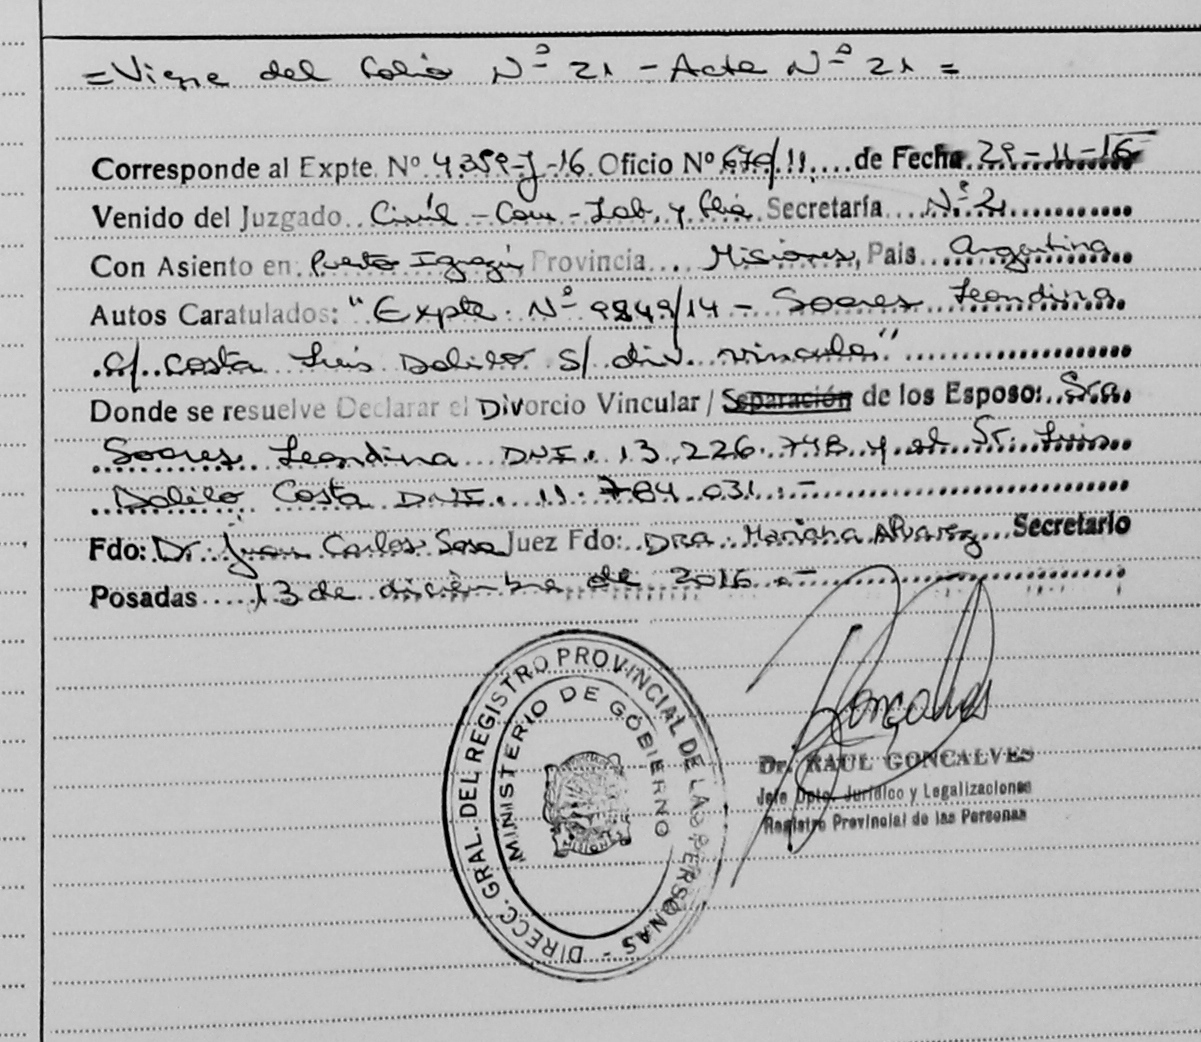 = Viene del Folio Nº 21 - Acta Nº 21 =
Corresponde al Expte. Nº 4359-J-16 Oficio Nº 679/11 de Fecha 29-11-16
Venido del Juzgado Civil - Com - Lab. y flia Secretaría Nº 2
Con Asiento en Puerto Iguazú Provincia Misiones, Pais Argentina
Autos Caratulados: "Expte. Nº 9849/14 - Soares Leondina
c/ Costa Luis Dolilo s/ div. vincular"
Donde se resuelve Declarar el Divorcio Vincular / Separación de los Esposo: Sra.
Soares Leondina DNI. 13.226.748 y el Sr. Luis
Dolilo Costa DNI. 11.784.031.-
Fdo: Dr. Juan Carlos Sosa Juez Fdo: DRA. Mariana Alvarez Secretario
Posadas 13 de diciembre de 2016.-
DIRECC. GRAL. DEL REGISTRO PROVINCIAL DE LAS PERSONAS -
MINISTERIO DE GOBIERNO
MISIONES
Gonçalves
Dr. RAUL GONCALVES
Jefe Dpto. Jurídico y Legalizaciones
Registro Provincial de las Personas